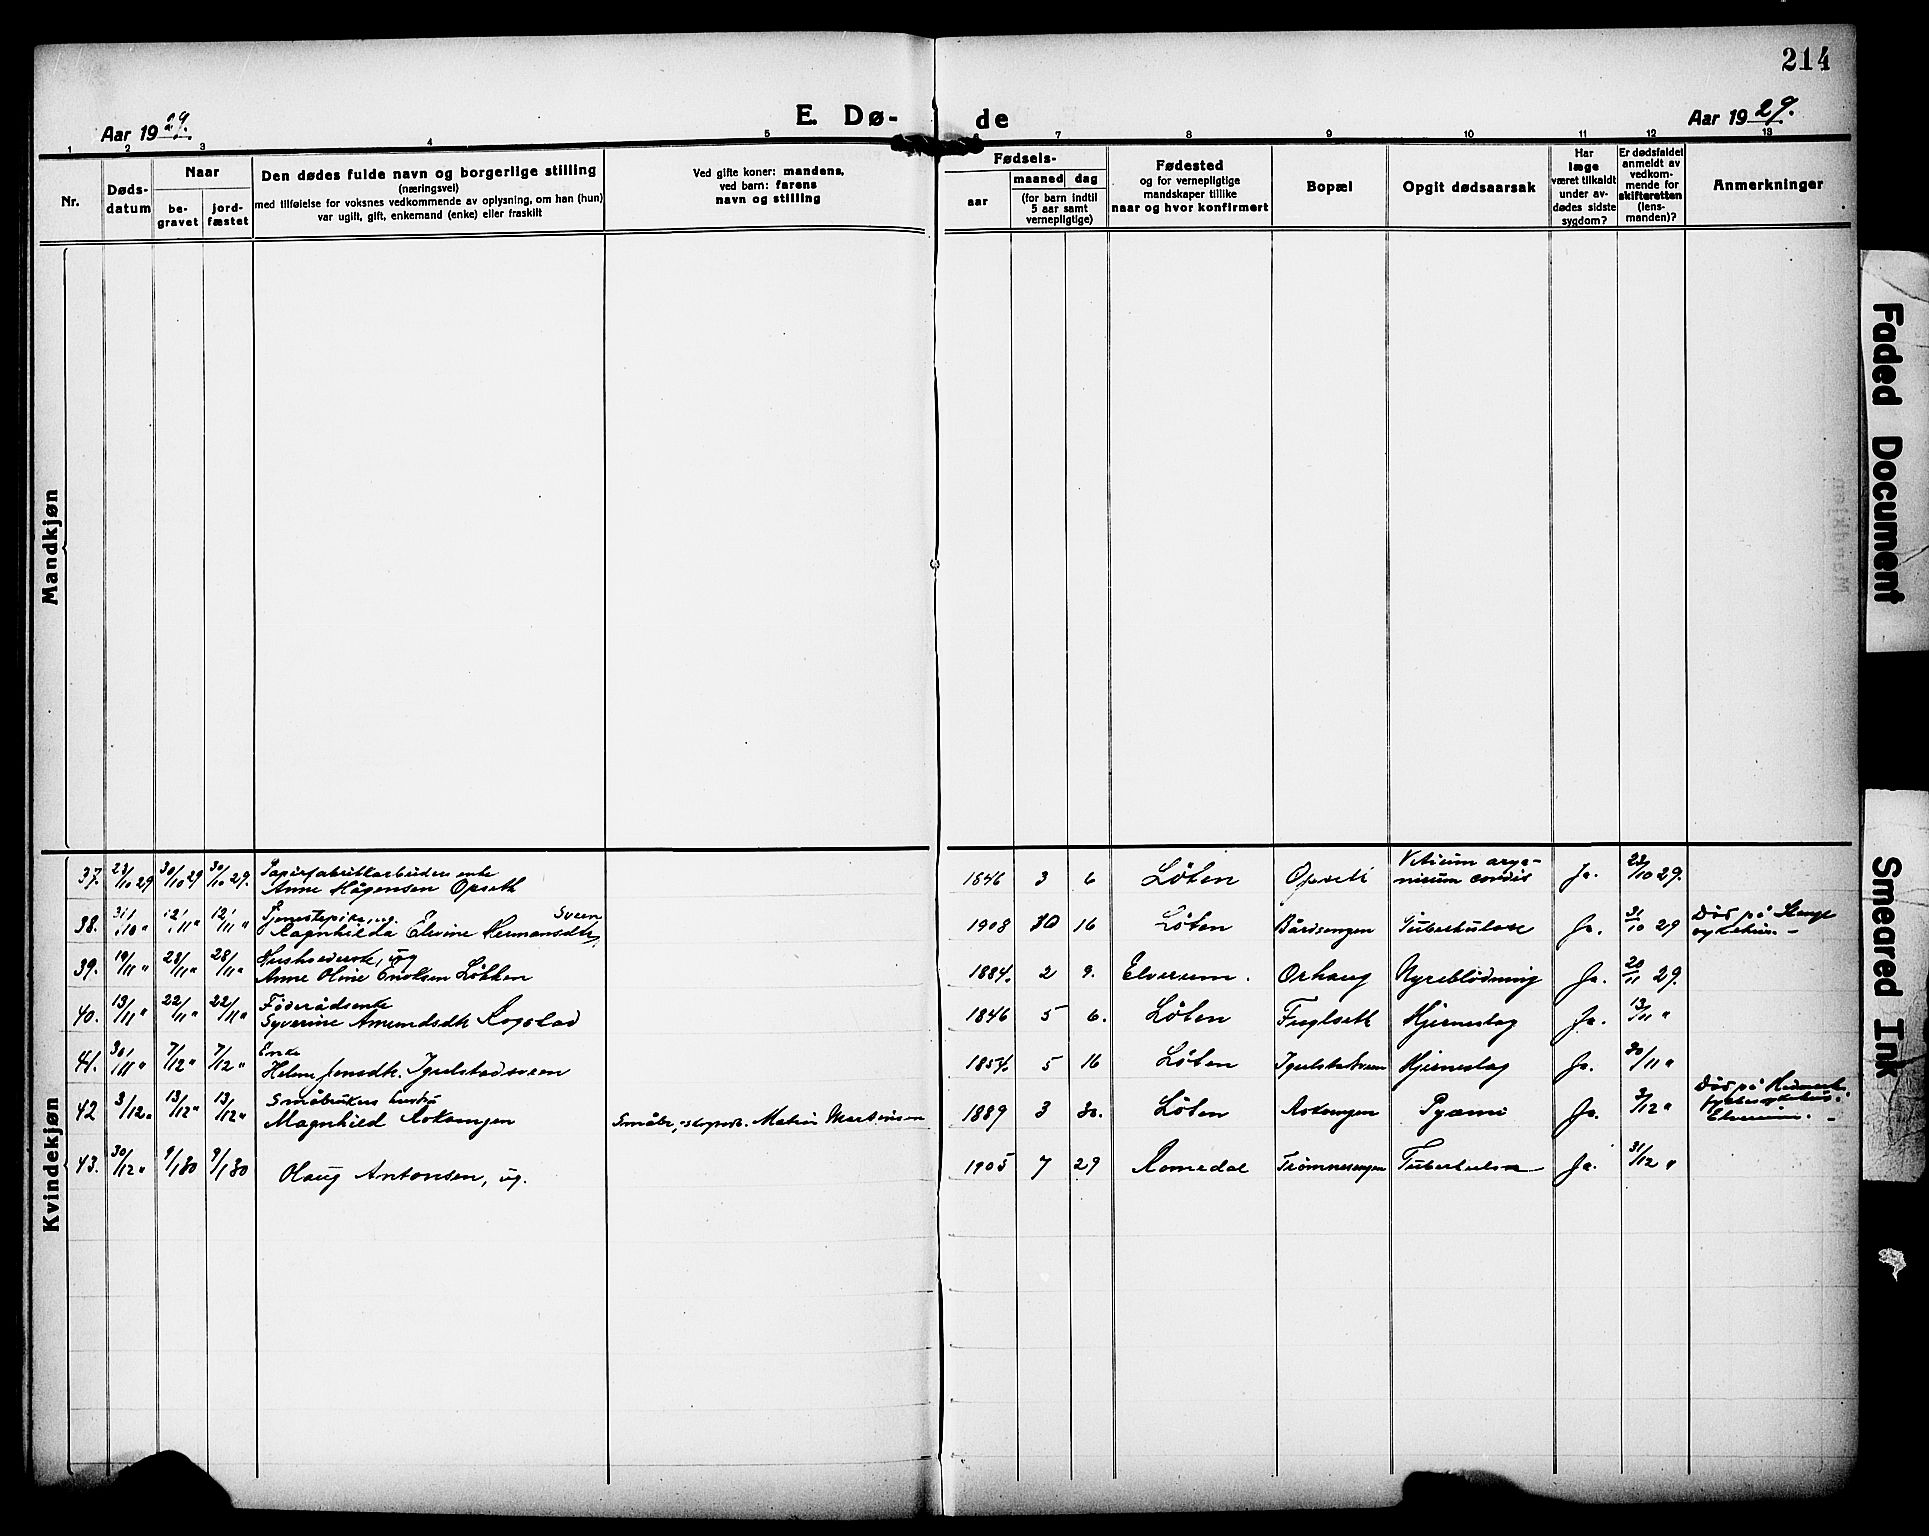 214
Aar 1929.
E. Dø-
de
Aar 1929.
1 2 3 4 5 6 7 8 9 10 11 12 13
Nr.
Døds-
datum
Naar
be-
gravet
jord-
fæstet
Den dødes fulde navn og borgerlige stilling
(næringsvei)
med tilføielse for voksnes vedkommende av oplysning, om han (hun)
var ugift, gift, enkemand (enke) eller fraskilt
Ved gifte koner: mandens,
ved barn: farens
navn og stilling
Fødsels-
aar
maaned dag
(for barn indtil
5 aar samt
vernepligtige)
Fødested
og for vernepligtige
mandskaper tillike
naar og hvor konfirmert
Bopæl
Opgit dødsaarsak
Har
læge
været tilkaldt
under av-
dødes sidste
sygdom?
Er dødsfaldet
anmeldt av
vedkom-
mende for
skifteretten
(lens-
manden)?
Anmerkninger
Mandkjøn
Kvindekjøn
37. 23/10 29 30/10 29 30/10 29. Papirfabrikkarbeiders enke
Anne Hågensen Opseth
1846 3 6 Løten Opseth Vitium orga-
nicum cordis Ja. 23/10 29.
38. 31/10 " 12/11 " 12/11 " Tjenestepike, ug.
Ragnhilda Elevine Hermansdtr. Sveen
1908 10 16 Løten Bårdsengen Tuberkulose Ja. 31/10 29 Død på Stange
sykehus. -
39. 19/11 " 28/11 " 28/11 " ug
Anne Oline Enoksen Løkken
1884. 2 9. Elverum. Orhaug Nyreblødning Ja. 20/11 29.
40. 13/11 " 22/11 " 22/11 " Føderådsenke
Syverine Amundsdtr. Rogstad
1846 5 6. Løten Fuglseth Hjerneslag Ja. 13/11 "
41. 30/11 " 7/12 " 7/12 " Enke
Helene Jensdtr. Igelstadsveen
1854. 5 16 Løten Igelstadsveen Hjerneslag Ja. 30/11 "
42 3/12 " 13/12 " 13/12 " Småbrukers hustru
Magnhild Rokengen
Småbr., skogsarb. Martin Martinsen
1889 3 30. Løten Rokengen Pyæmi Ja. 3/12 " Død på Hedmark
Elverum. -
43. 30/12 " 9/1 30 9/1 30
Olaug Antonsen, ug.
1905 7 29 Romedal Trømnesengen Tuberkulose Ja. 31/12 "
Faded Document
Smeared Ink